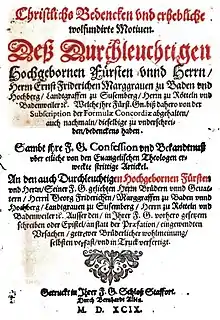 Christlichs Bedencken vnd erhebliche
wolfundirte Motiuen.
Deß Durchleuchtigen
Hochgebornen Fürsten vnnd Herrn/
Herrn Ernst Friderichen Marggrauen zu Baden vnd
Hochberg/ Landtgraffen zu Susenberg/ Herrn zu Röteln vnd
Badenweiler ꝛc. Welche jhre Fürstl. Gn. biß dahero von der
Subscription der Formulæ Concordiæ abgehalten/
auch nachmaln/ dieselbige zu vnderschrei-
ben/ bedenckens haben.
Sambt jhrer F. G. Confession vnd Bekandtnuß
vber etliche von den Euangelischen Theologen er-
weckte strittige Artickel.
An den auch Durchleuchtigen Hochgebornen Fürsten
vnd Herrn/ Seiner F. G. geliebten Herrn Brüdern vnnd Geuat-
tern/ Herrn Georg Friderichen/ Marggraffen zu Baden vnd
Hochberg/ Landgrauen zu Susenberg/ Herrn zu Röteln vnd
Badenweiler ꝛc. Ausser den/ in Jhrer F. G. vorhero gesetztem
schreiben oder Epistel/ anstatt der Præfation/ eingewendten
Vrsachen/ getrewer Brüderlicher wohlmeinung/
selbsten verfaßt/ vnd in Truck verfertigt.
Getruckt in Jhrer F. G. Schloß Staffort.
Durch Bernhardt Albin.
M. D. XCIX.